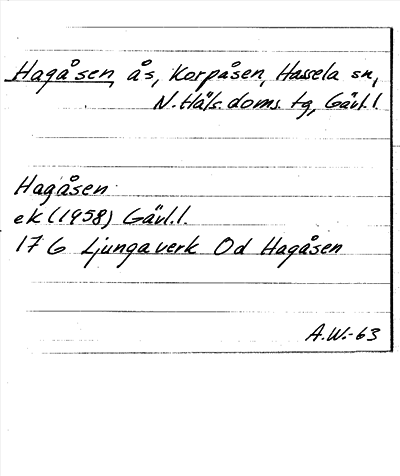 Hagåsen, ås, Korpåsen, Hassela sn,
N. Häls. doms. tg, Gävl. l.
Hagåsen
ek (1958) Gävl. l.
17 G Ljungaverk Od Hagåsen
A.W.-63